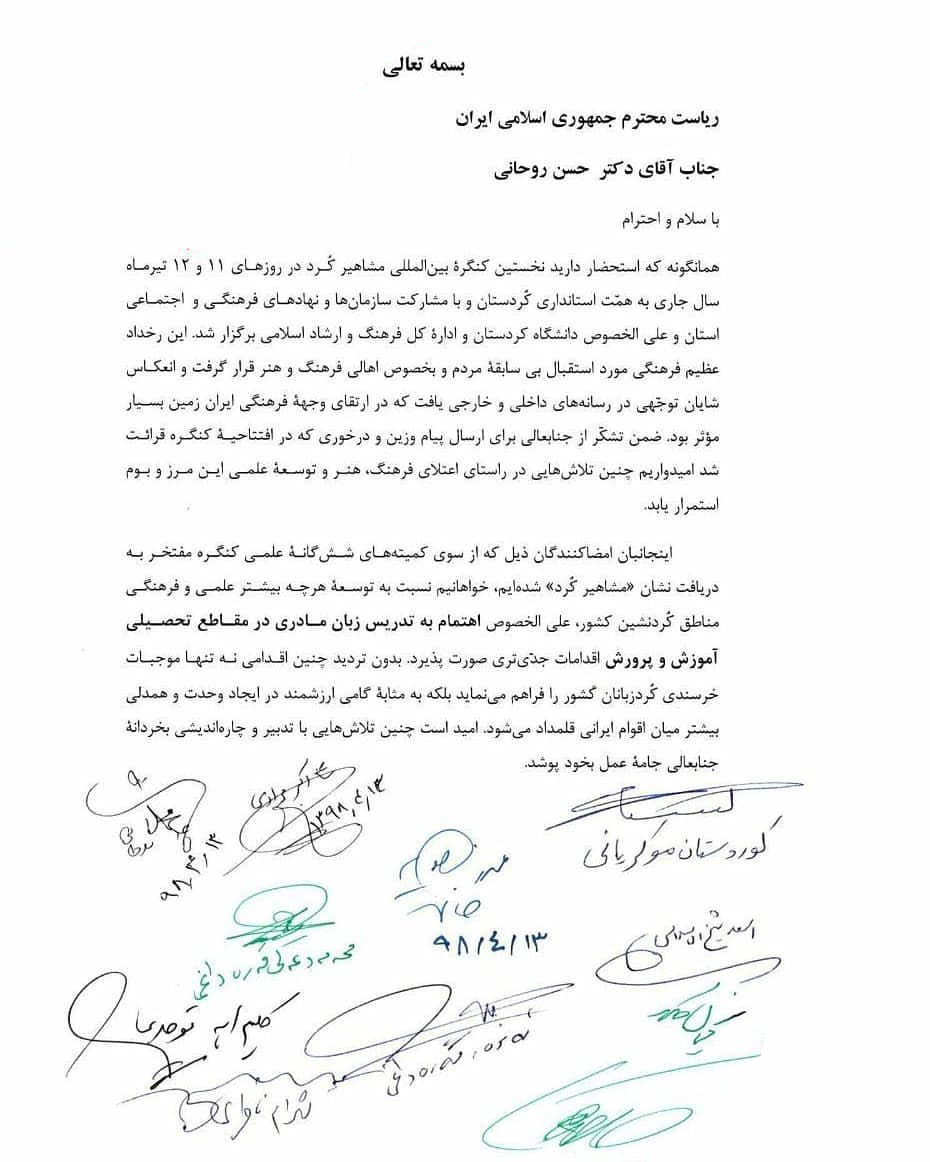 بسمه تعالی
ریاست محترم جمهوری اسلامی ایران
جناب آقای دکتر حسن روحانی
با سلام و احترام
همانگونه که استحضار دارید نخستین کنگرهٔ بین‌المللی مشاهیر کُرد در روزهـای ۱۱ و ۱۲ تیرمـاه
سال جاری به همّت استانداری کُردستان و با مشارکت سازمان‌ها و نهادهـای فرهنگـی و اجتمـاعی
استان و علی الخصوص دانشگاه کردستان و ادارهٔ کل فرهنگ و ارشاد اسلامی برگزار شد. این رخداد
عظیم فرهنگی مورد استقبال بی سابقهٔ مردم و بخصوص اهالی فرهنگ و هنر قرار گرفت و انعکـاس
شایان توجّهی در رسانه‌های داخلی و خارجی یافت که در ارتقای وجههٔ فرهنگی ایران زمین بسـیار
مؤثر بود. ضمن تشکّر از جنابعالی برای ارسال پیام وزین و درخوری که در افتتاحیـهٔ کنگـره قرائـت
شد امیدواریم چنین تلاش‌هایی در راستای اعتلای فرهنگ، هنـر و توسـعهٔ علمـی ایـن مـرز و بـوم
استمرار یابد.
اینجانبان امضاکنندگان ذیل که از سوی کمیته‌هـای شـش‌گانـهٔ علمـی کنگـره مفتخـر بـه
دریافت نشان «مشاهیر کُرد» شده‌ایم، خواهانیم نسبت به توسـعهٔ هرچـه بیشـتر علمـی و فرهنگـی
مناطق کُردنشین کشور، علی الخصوص اهتمام به تدریس زبان مـادری در مقـاطع تحصـیلی
آموزش و پرورش اقدامات جدّی‌تری صورت پذیرد. بدون تردید چنین اقـدامی نـه تنهـا موجبـات
خرسندی کُردزبانان گشور را فراهم می‌نماید بلکه به مثابهٔ گامی ارزشمند در ایجاد وحدت و همدلی
بیشتر میان اقوام ایرانی قلمداد می‌شود. امید است چنین تلاش‌هایی با تدبیر و چاره‌اندیشی بخردانهٔ
جنابعالی جامهٔ عمل بخود پوشد.
۱۳۹۸/۴/۱۳
۹۸/۴/۱۳
کوردستان موکریانی
۹۸/٤/۱۳
اسعد شیخ الاسلامی
محەمەدعەلی قەرەداغی
کلیم اله توحدی
شهرام ناظری